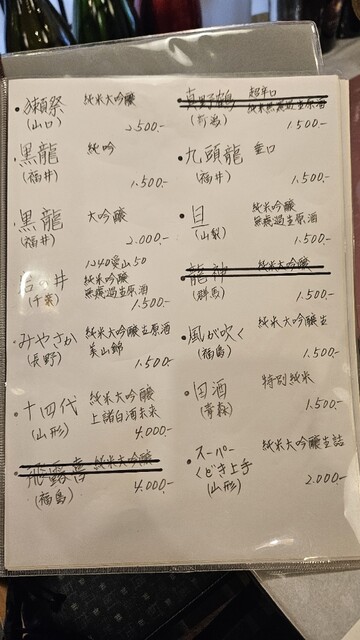 ・獺祭 純米大吟醸
(山口) 2.500.-
黒龍 純吟
(福井) 1.500.-
・黒龍 大吟醸
(福井) 2.000.-
1240愛山50
・岩の井 純米吟醸
無濾過生原酒
(千葉) 1.500.-
・みやさか 純米大吟醸生原酒
(長野) 美山錦
1.500.-
・十四代 純米大吟醸
上諸白酒未来
(山形) 4.000.-
・飛露喜 純米大吟醸
(福島) 4.000.-
・真野鶴 超辛口
純米無濾過生原酒
1.500.-
・九頭龍 垂口
(福井) 1.500.-
・旦 純米吟醸
無濾過生原酒
(山梨) 1.500.-
・龍神 純米大吟醸
(群馬) 1.500.-
・風が吹く 純米吟醸生
(福島) 1.500.-
・田酒 特別純米
(青森) 1.500.-
・スーパー 純米大吟醸生詰
くどき上手
(山形) 2.000.-